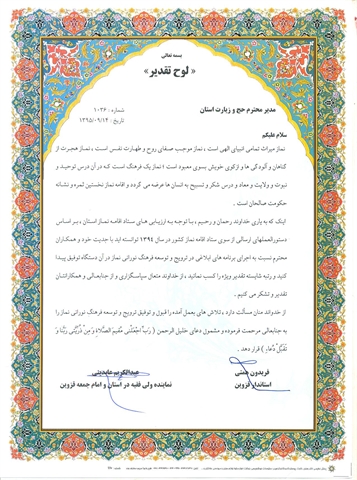 بسمه تعالی
« لوح تقدیر »
شماره : ۱۰۳۶
مدیر محترم حج و زیارت استان
تاریخ : ۱۳۹۵/۰۹/۱۴
سلام علیکم
نماز میراث تمامی انبیای الهی است ، نماز موجب صفای روح و طهارت نفس است ، نماز هجرت از
گناهان و آلودگی ها و ازکوی خویش بسوی معبود است ؛ نماز یک فرهنگ است کـه در آن درس توحیـد و
نبوت و ولایت و معاد و درس شکر و تسبیح به انسان ها عرضه می گردد و اقامه نماز نخستین ثمره و نشانه
حکومت صالحان است .
اینک که به یاری خداوند رحمان و رحیـم ، با توجـه بـه ارزیابی هـای ستاد اقامـه نمـاز استان ، بـر اساس
دستورالعملهای ارسالی از سوی ستاد اقامه نماز کشور در سال ۱۳۹۴ توانسته اید با جدیت خود و همکاران
محترم نسبت به اجرای برنامه های ابلاغی در ترویج و توسعه فرهنگ نورانی نماز در آن دستگاه توفیق پیدا
کنید و رتبه شایسته تقدیر ویژه را کسب نمائید ، از خداوند متعال سپاسگزاری و از جنابعالی و همکارانتان
تقدیر و تشکر می کنیم .
از خداوند منان مسألت دارد ، تلاش های بعمل آمده را قبول و توفیق ترویج و توسعه فرهنگ نورانی نماز را
به جنابعالی مرحمت فرموده و مشمول دعای خلیل الرحمن ( رَبِّ اجْعَلْنی مُقیمَ الصَّلاةِ وَ مِنْ ذُرِّیَّتی رَبَّنا وَ
تَقَبَّلْ دُعاءِ ) قرار دهد .
فریدون همتی
استاندار قزوین
عبدالکریم عابدینی
نماینده ولی فقیه در استان و امام جمعه قزوین